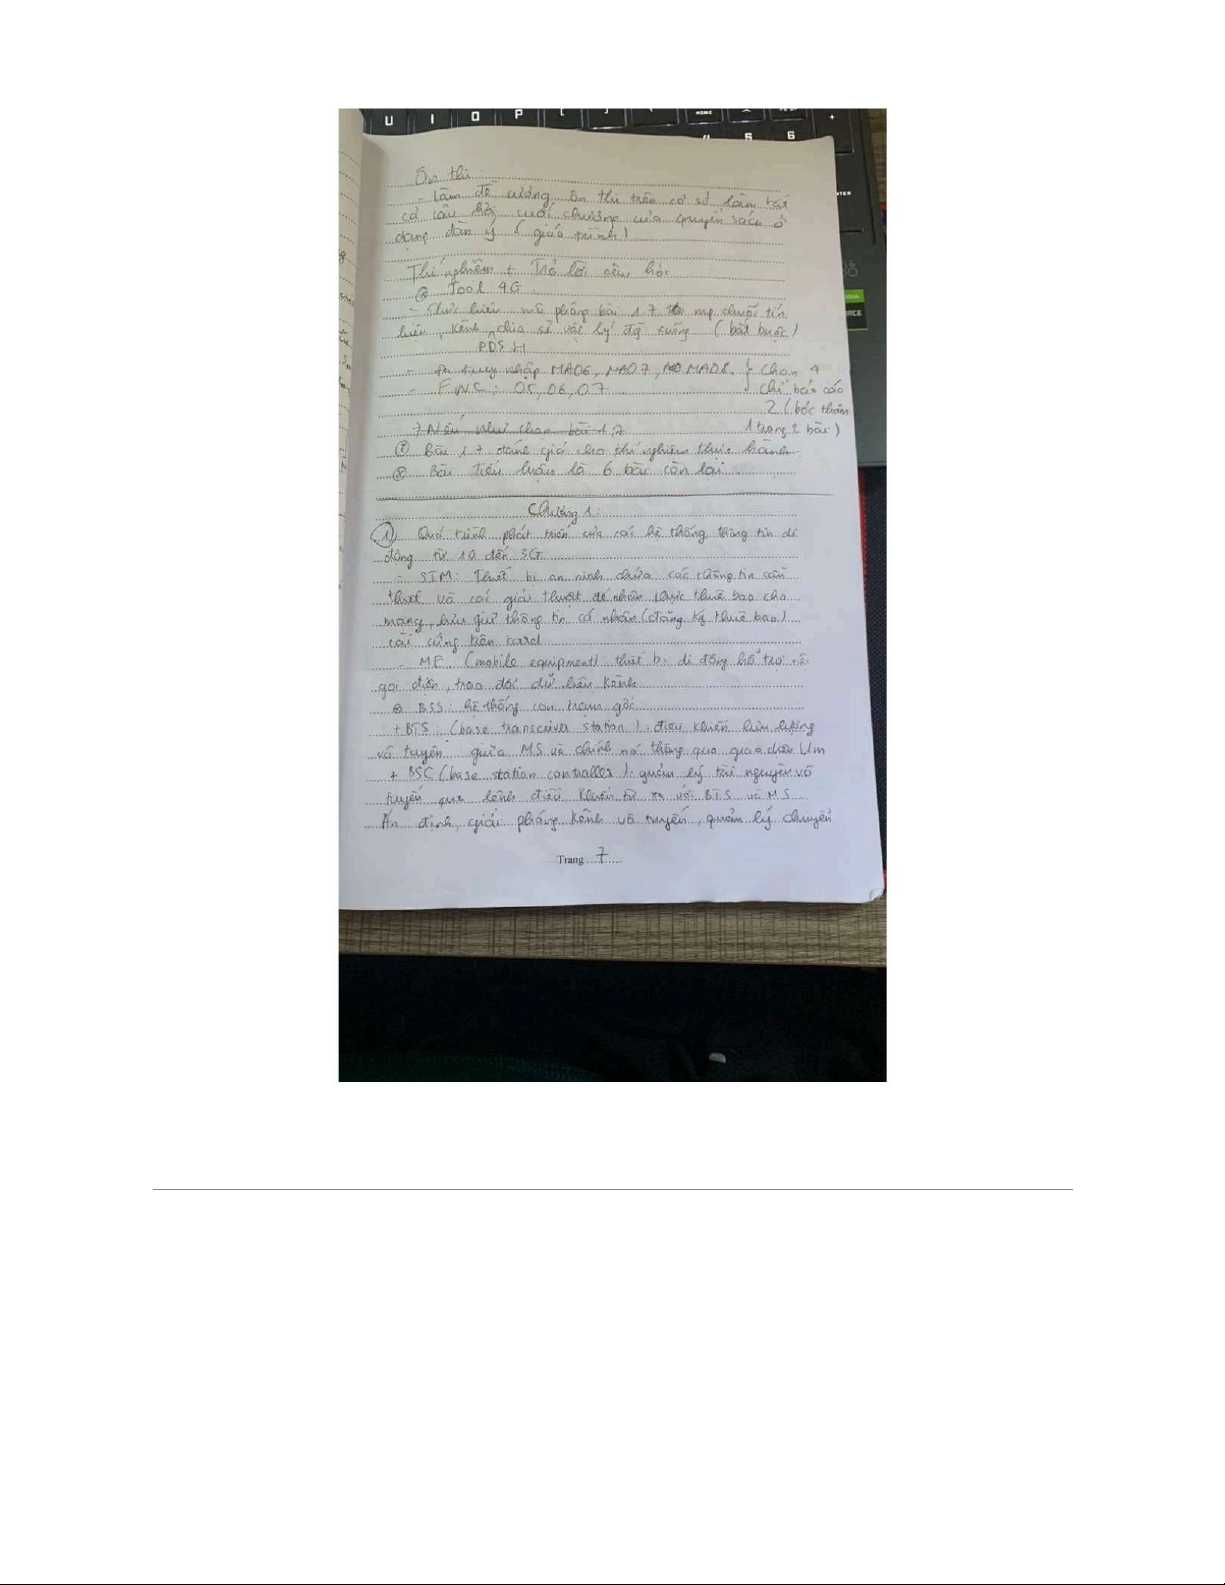 U I O P [ ] \ HOME +
5 6
ENTER
Ôn thi
- Làm đề cương ôn thi trên cơ sở làm tất
cả câu hỏi cuối chương của quyển sách ở
dạng dàn ý ( giáo trình )
Thí nghiệm + Trả lời câu hỏi
Tool 4G
- Thực hiện mô phỏng bài 1.7 mp chuỗi tín
hiệu kênh chia sẻ vật lý đg xuống ( bắt buộc )
PDSH
- Đa truy nhập MA06, MA07, MA08. } Chọn 4
- FWC : 05, 06, 07
chỉ báo cáo
2 ( bóc thăm
1 trong 2 bài )
Nếu như chọn bài 1.7
Bài 1.7 đánh giá cho thí nghiệm thực hành
Bài tiểu luận là 6 bài còn lại
Chương 1:
1) Quá trình phát triển của các hệ thống thông tin di
động từ 1G đến 5G
- SIM: Thiết bị an ninh chứa các thông tin cần
thiết và các giải thuật để nhận thực thuê bao cho
mạng, lưu giữ thông tin cá nhân (đăng ký thuê bao)
cài cứng trên card
- ME: (mobile equipment) thiết bị di động hỗ trợ
gọi điện, trao đổi dữ liệu kênh
BSS: hệ thống con trạm gốc
+ BTS: (base transceiver station): điều khiển lưu lượng
vô tuyến giữa MS và chính nó thông qua giao diện Um
+ BSC (base station controller): quản lý tài nguyên vô
tuyến qua lệnh điều khiển từ xa với BTS và MS
Ấn định, giải phóng kênh vô tuyến, quản lý chuyển
Trang 7